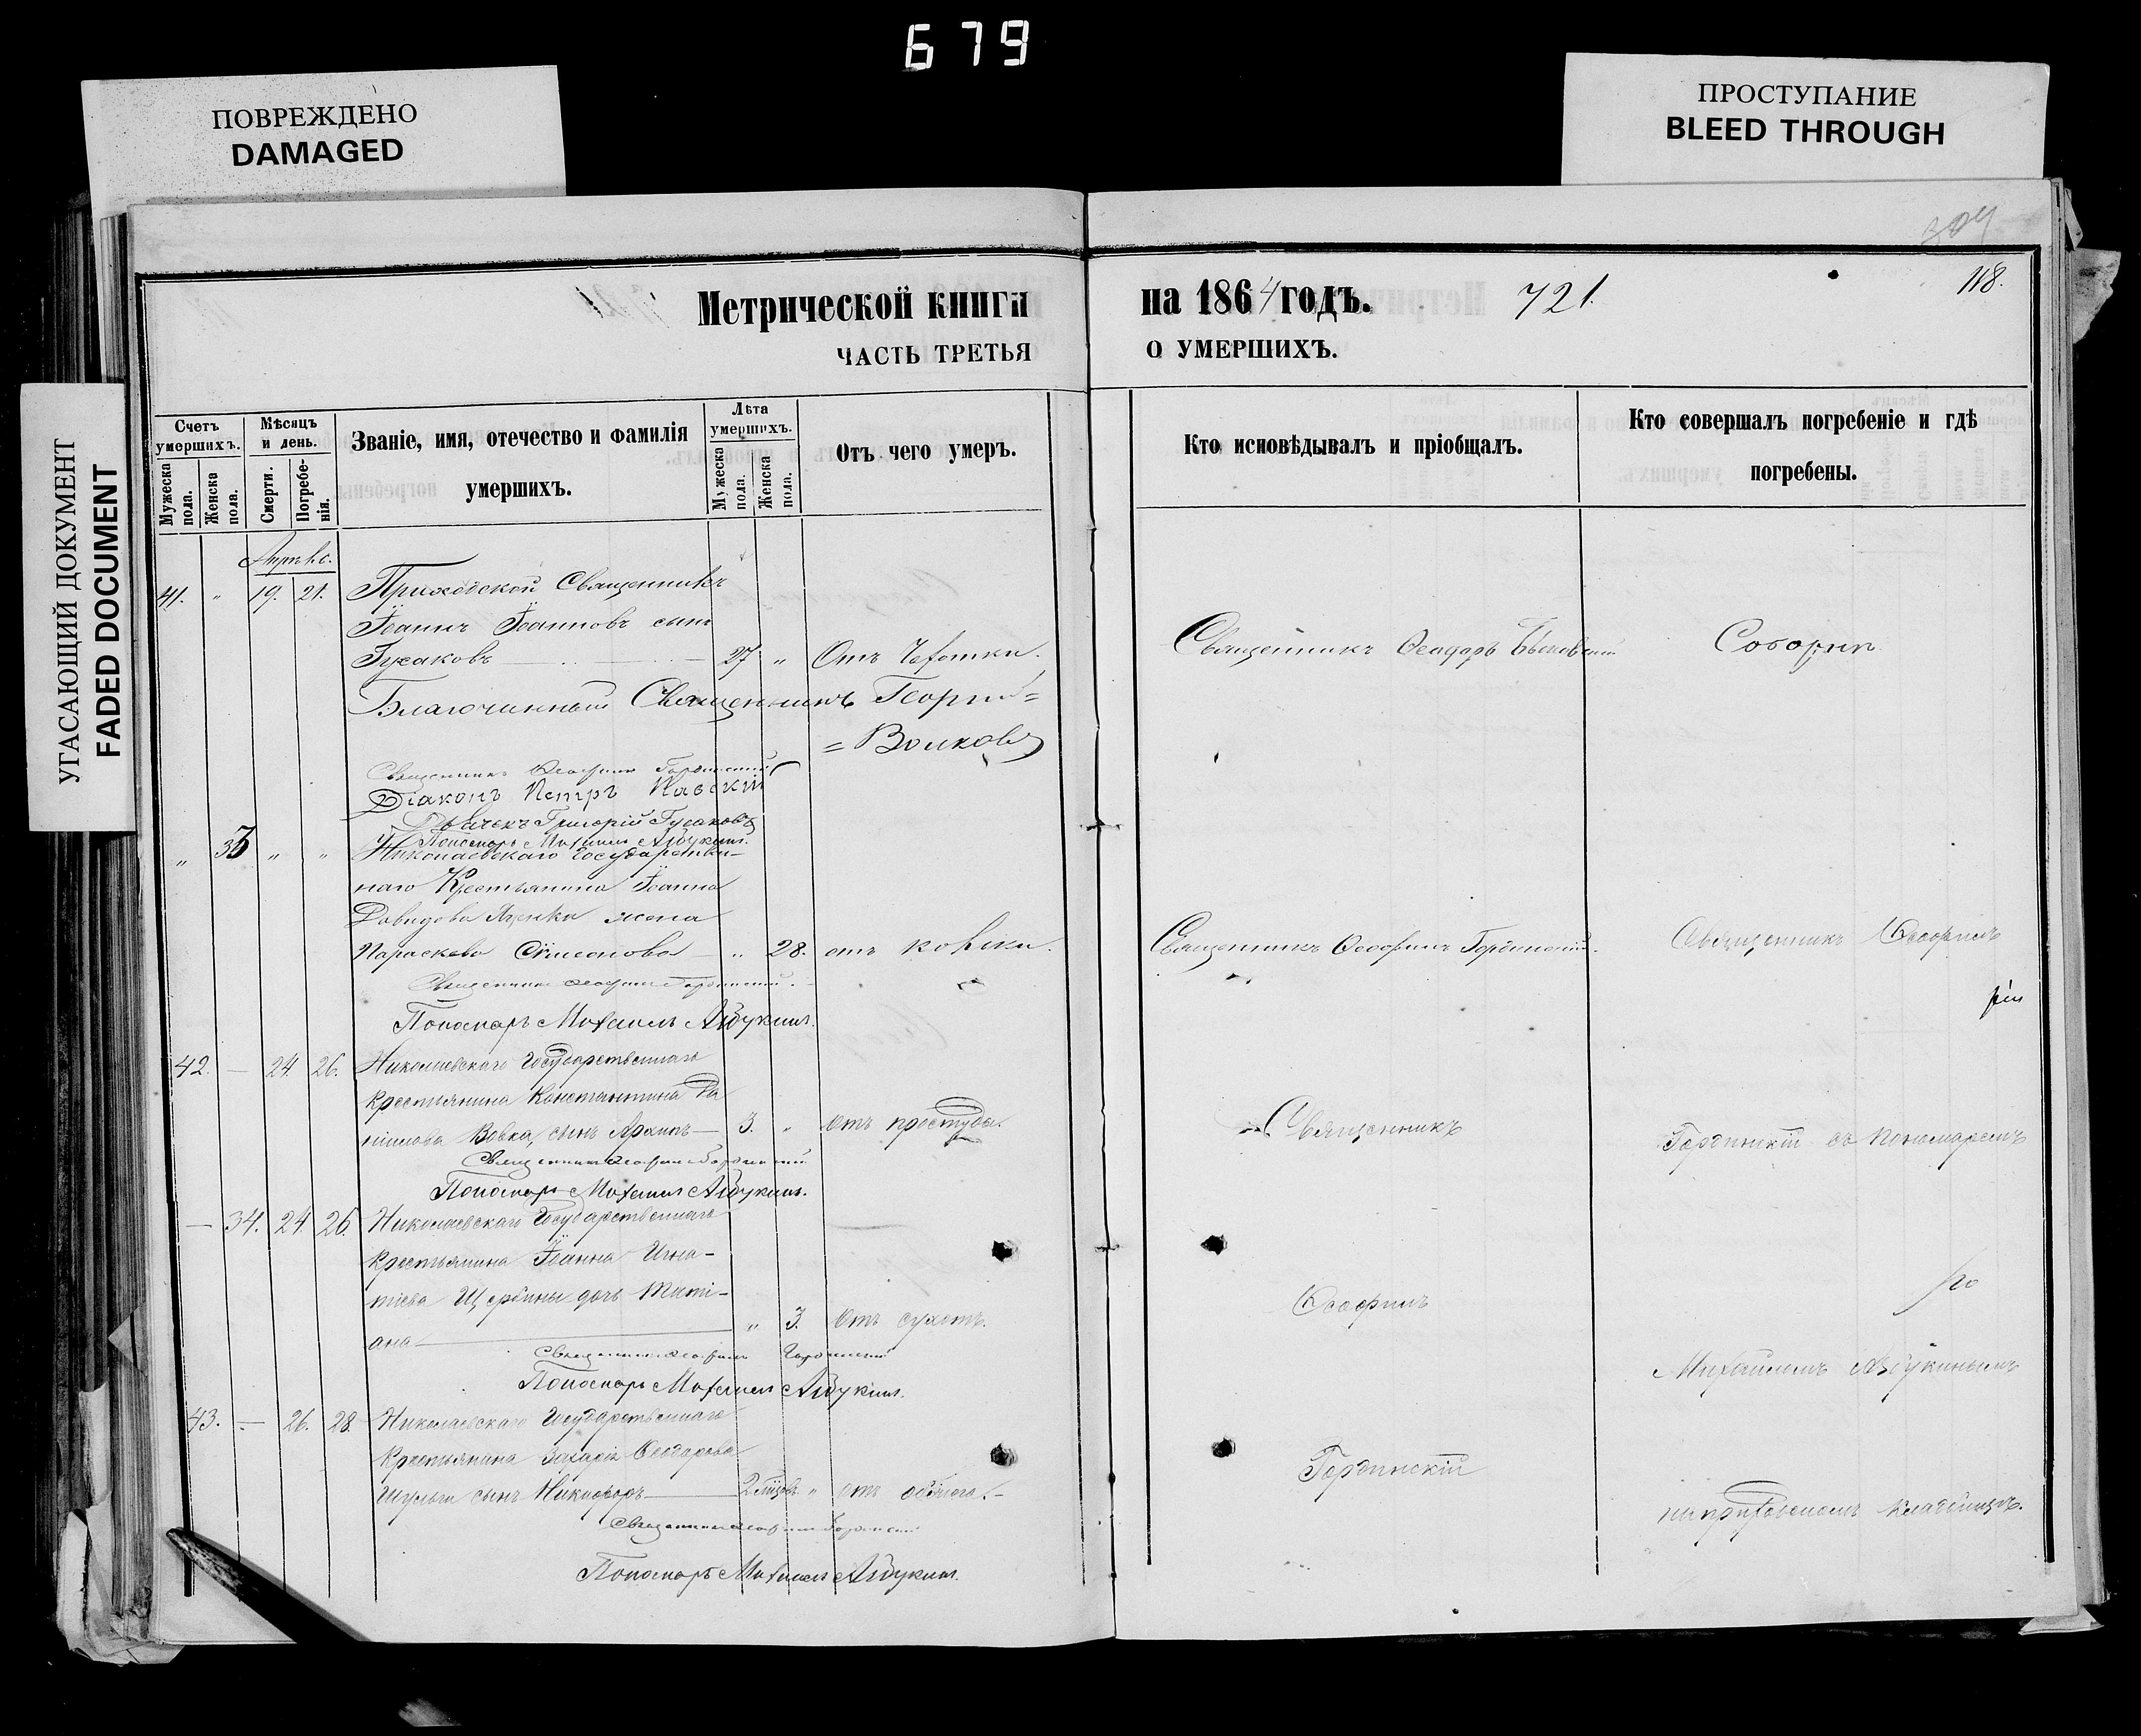 679
ПОВРЕЖДЕНО
DAMAGED
ПРОСТУПАНИЕ
BLEED THROUGH
УГАСАЮЩИЙ ДОКУМЕНТ
FADED DOCUMENT
304
118.
Метрической книги на 1864 годъ. 721.
ЧАСТЬ ТРЕТЬЯ О УМЕРШИХЪ.
Счетъ умершихъ.
Мужеска пола.
Женска пола.
Мѣсяцъ и день.
Смерти.
Погребенія.
Званіе, имя, отечество и фамилія умершихъ.
Лѣта умершихъ.
Мужеска пола.
Женска пола.
Отъ чего умеръ.
Кто исповѣдывалъ и пріобщалъ.
Кто совершалъ погребеніе и гдѣ погребены.
41. " 19. 21. Приходской Священникъ
Іоаннъ Іоанновъ сынъ
Гусаковъ 27 " Отъ Чахотки. Священникъ Ѳеодоръ Соборнѣ
Благочинный Священникъ Георгій =
= Волковъ
Священникъ Ѳеофилъ Гординскій
Діаконъ Петръ
Дьячекъ Григорій Гусаковъ
Пономарь Михаилъ Азбукинъ.
" 33 " " Николаевскаго Государствен-
наго Крестьянина Іоанна
Давидова жена
Параскева Симеонова " 28. отъ Священникъ Ѳеофилъ Гординскій. Священникъ Ѳеофилъ
Священникъ Ѳеофилъ Гординскій.
Пономарь Михаилъ Азбукинъ.
42. — 24. 26. Николаевскаго Государственнаго
Крестьянина Константина Да
ніилова Вовка, сынъ Архипъ — 3. " отъ простуды. Священникъ Гординскій съ Пономаремъ
Священникъ Ѳеофилъ Гординскій
Пономарь Михаилъ Азбукинъ.
— 34. 24. 26. Николаевскаго Государственнаго
Крестьянина Іоанна Игна-
тіева Щербины дочь Тати-
ана — " 3. Отъ сухотъ. Ѳеофилъ
Священникъ Ѳеофилъ Гординскій
Пономарь Михаилъ Азбукинъ. Михаиломъ Азбукинымъ
43. — 26. 28. Николаевскаго Государственнаго
Крестьянина Захарія Ѳеодорова
Шульги сынъ Никифоръ — 2 " отъ Гординскій
на приходскомъ кладбищѣ.
Священникъ Ѳеофилъ Гординскій
Пономарь Михаилъ Азбукинъ.